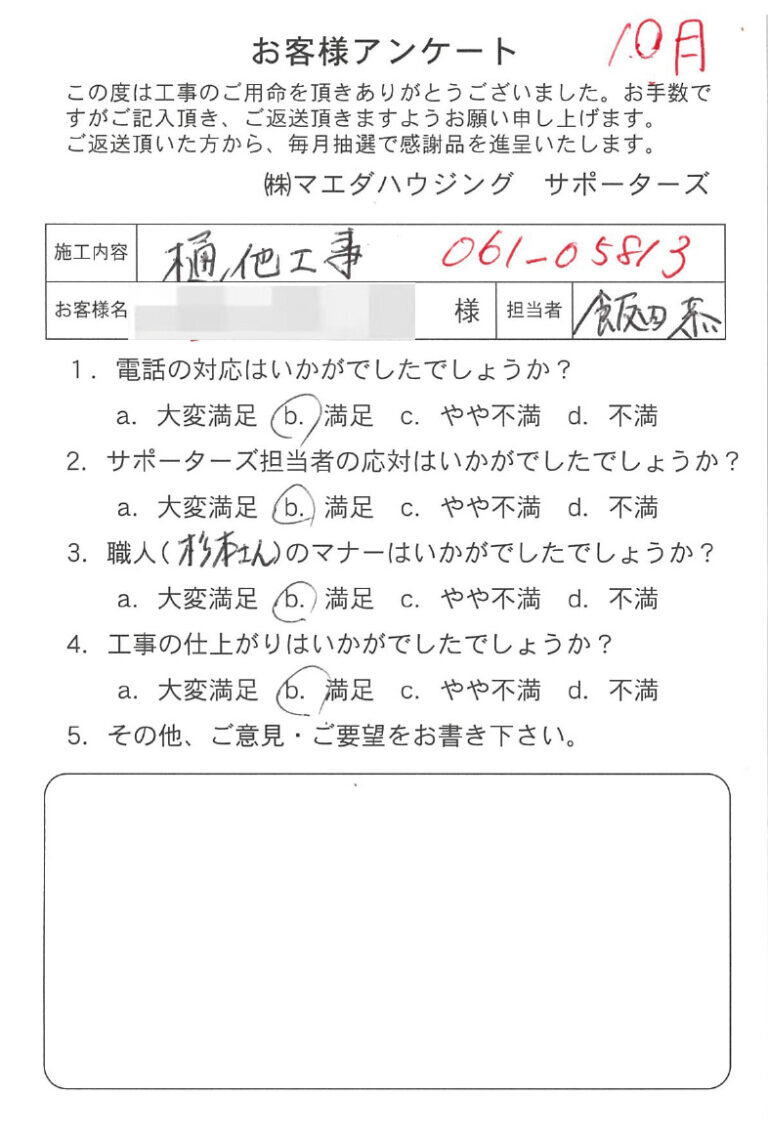 お客様アンケート
10月
この度は工事のご用命を頂きありがとうございました。お手数で
すがご記入頂き、ご返送頂きますようお願い申し上げます。
ご返送頂いた方から、毎月抽選で感謝品を進呈いたします。
㈱マエダハウジング サポーターズ
施工内容 樋、他工事 061-05813
お客様名 様 担当者 飯田恭
1. 電話の対応はいかがでしたでしょうか？
a. 大変満足 b. 満足 c. やや不満 d. 不満
2. サポーターズ担当者の応対はいかがでしたでしょうか？
a. 大変満足 b. 満足 c. やや不満 d. 不満
3. 職人(杉本さん)のマナーはいかがでしたでしょうか？
a. 大変満足 b. 満足 c. やや不満 d. 不満
4. 工事の仕上がりはいかがでしたでしょうか？
a. 大変満足 b. 満足 c. やや不満 d. 不満
5. その他、ご意見・ご要望をお書き下さい。